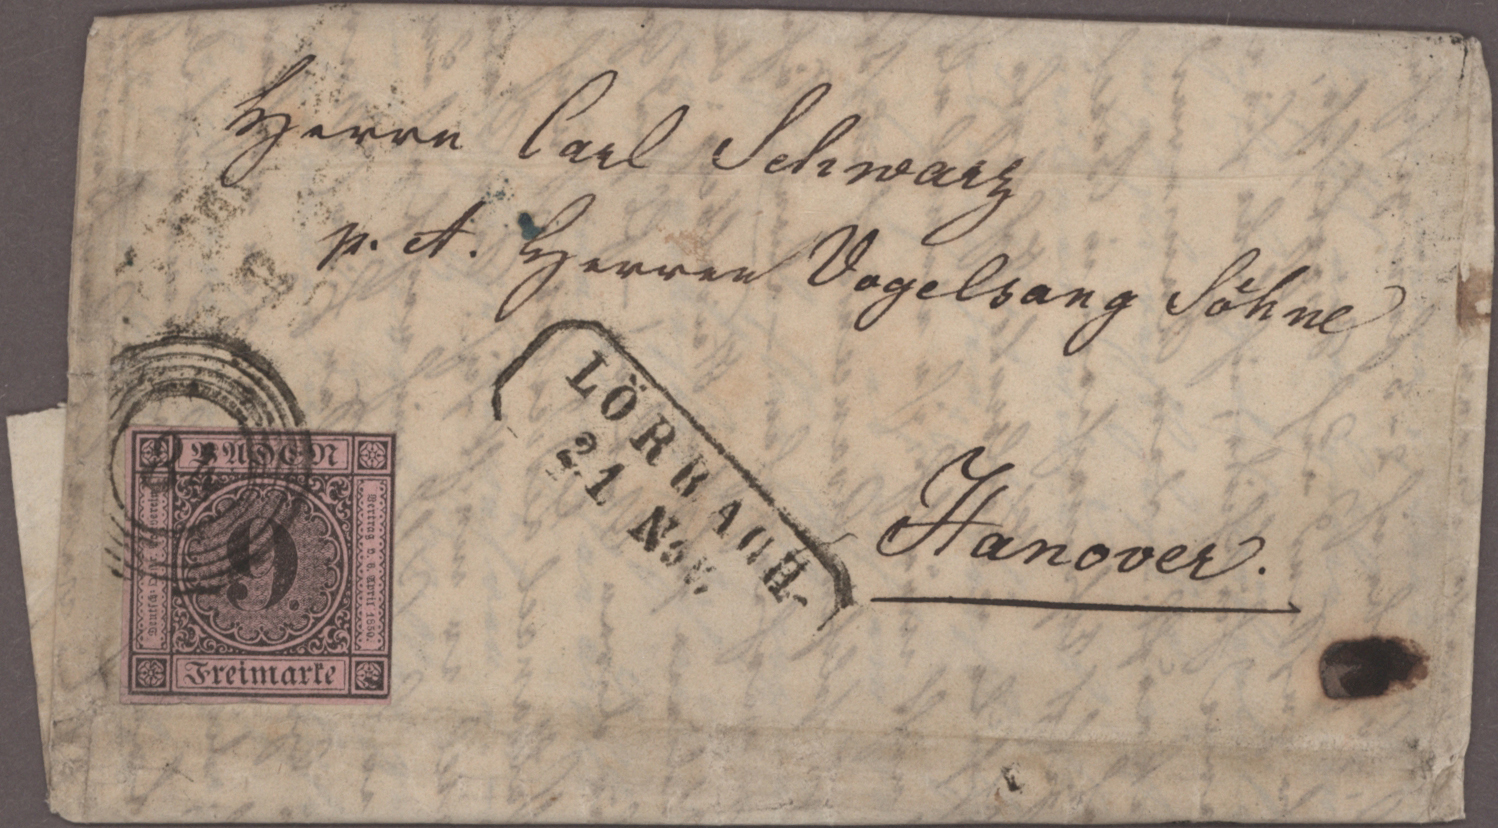 Herrn Carl Schwarz
p. A. Herren Vogelsang Söhne
Hanover.
LÖRRACH
21 Nov.
BADEN
9.
Freimarke
Vertrag v. 6. April 1850.